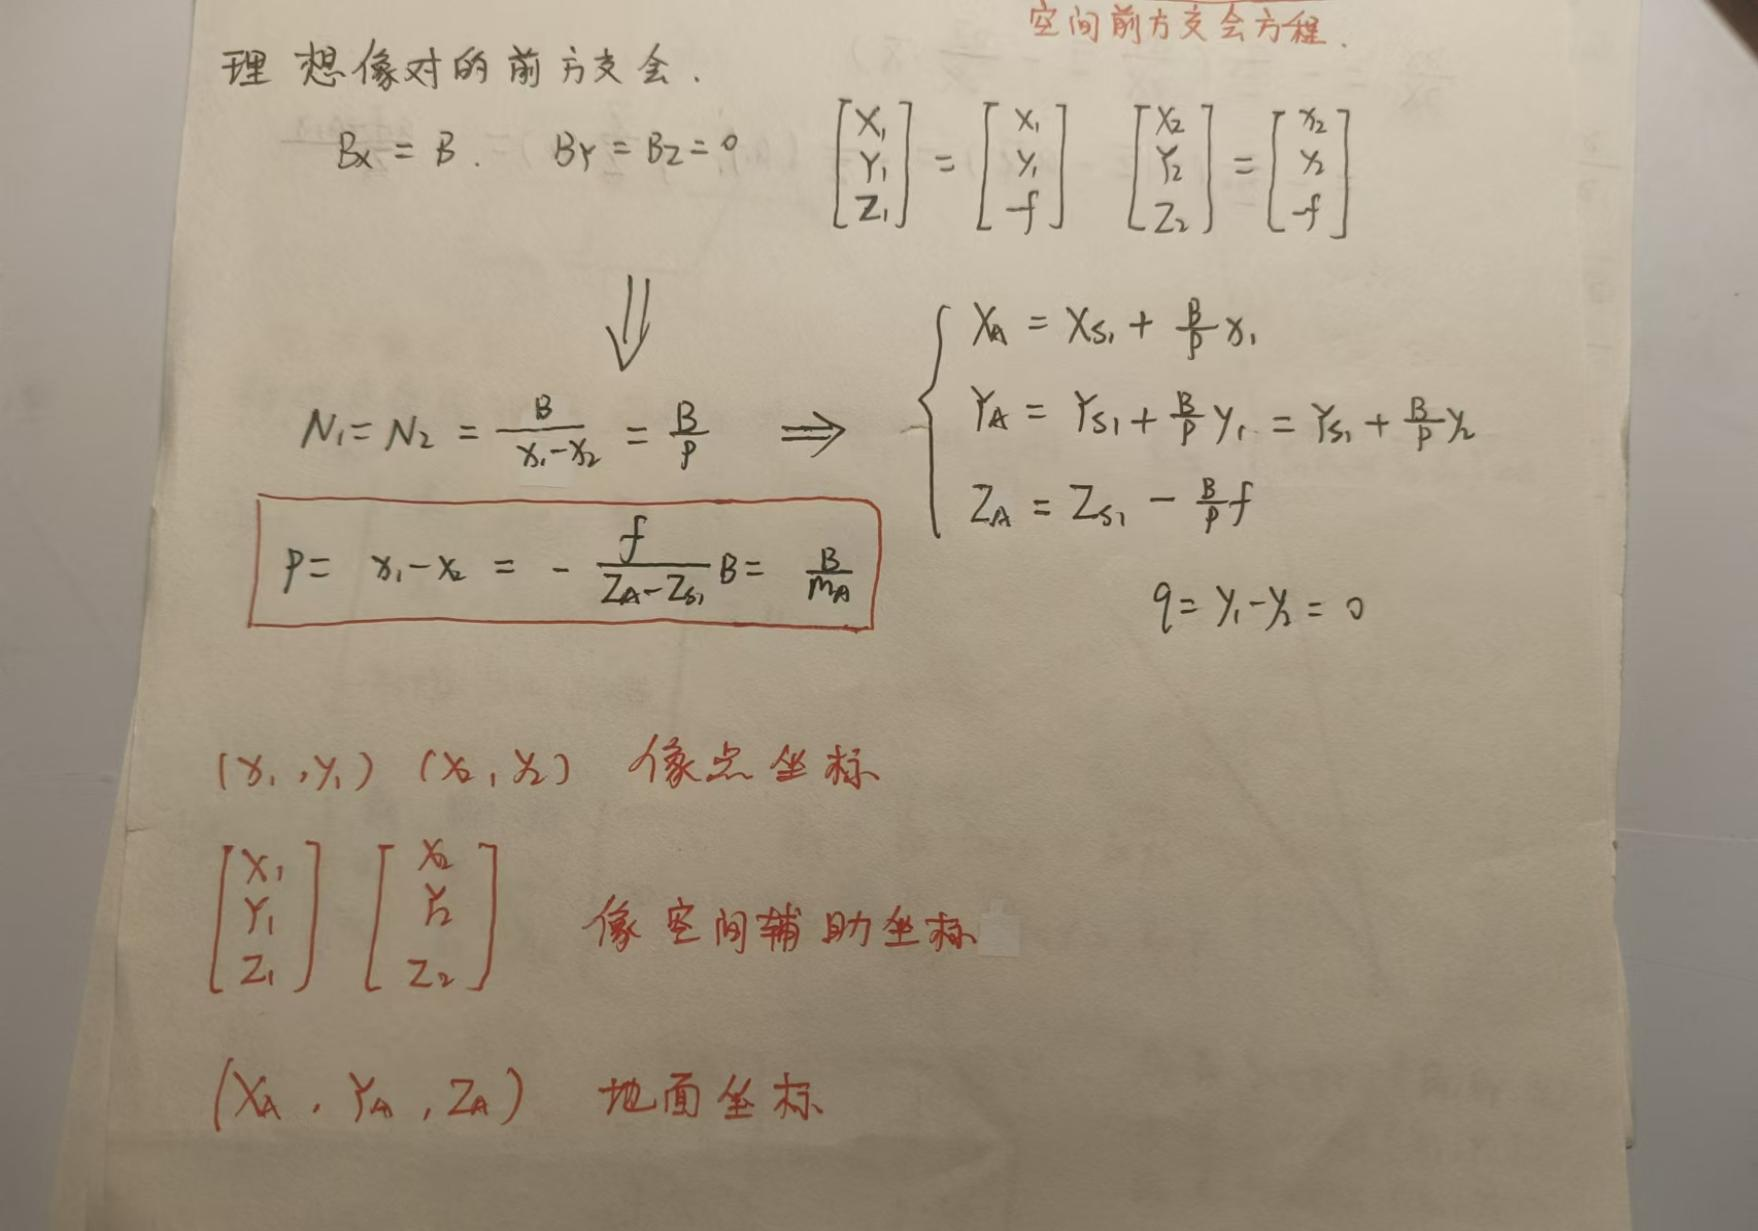 空间前方交会方程.
理想像对的前方交会.
Bx = B. BY = BZ = 0 [X₁ Y₁ Z₁] = [x₁ y₁ -f] [X₂ Y₂ Z₂] = [x₂ y₂ -f]
⇓
XA = XS₁ + B/P x₁
N₁ = N₂ = B/(x₁-x₂) = B/P ⇒ YA = YS₁ + B/P y₁ = YS₁ + B/P y₂
ZA = ZS₁ - B/P f
P = x₁-x₂ = - f/(ZA-ZS₁) B = B/mA
q = y₁-y₂ = 0
(x₁, y₁) (x₂, y₂) 像点坐标
[X₁ Y₁ Z₁] [X₂ Y₂ Z₂] 像空间辅助坐标
(XA, YA, ZA) 地面坐标